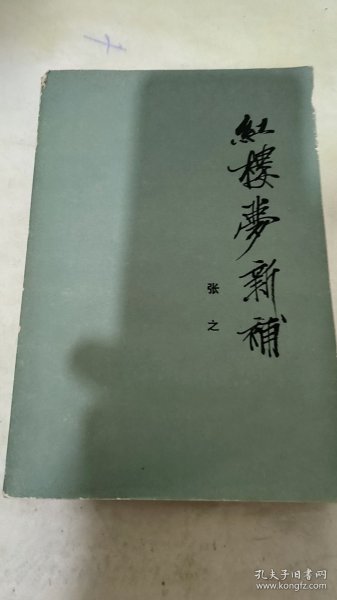 紅樓夢新補
张之
孔夫子旧书网